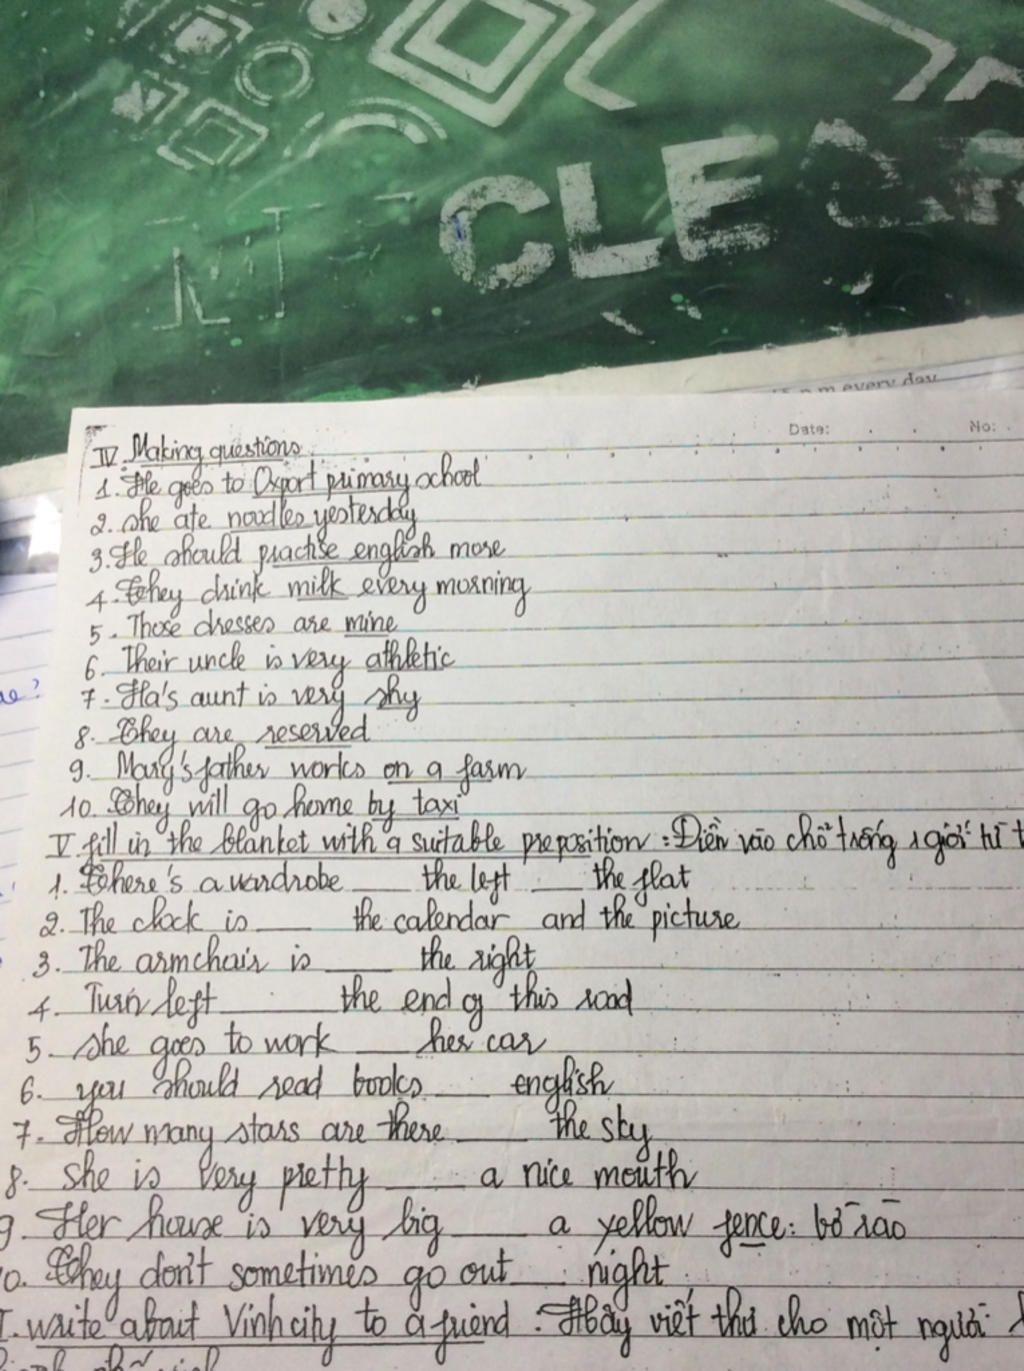 CLEAR
m every day
Date: No:
IV. Making questions
1. He goes to Oxport primary school
2. she ate noodles yesterday
3. He should practise english more
4. They drink milk every morning
5. Those dresses are mine
6. Their uncle is very athletic
7. Ha's aunt is very shy
8. They are reserved
9. Mary's father works on a farm
10. They will go home by taxi
V. fill in the blanket with a suitable preposition: Điền vào chỗ trống 1 giới từ t
1. There's a wardrobe ___ the left ___ the flat
2. The clock is ___ the calendar and the picture
3. The armchair is ___ the right
4. Turn left ___ the end of this road
5. she goes to work ___ her car
6. you should read books ___ english
7. How many stars are there ___ the sky
8. she is very pretty ___ a nice mouth
9. Her house is very big ___ a yellow fence: bờ rào
0. They don't sometimes go out ___ night
I. write about Vinh city to a friend. Hãy viết thư cho một người